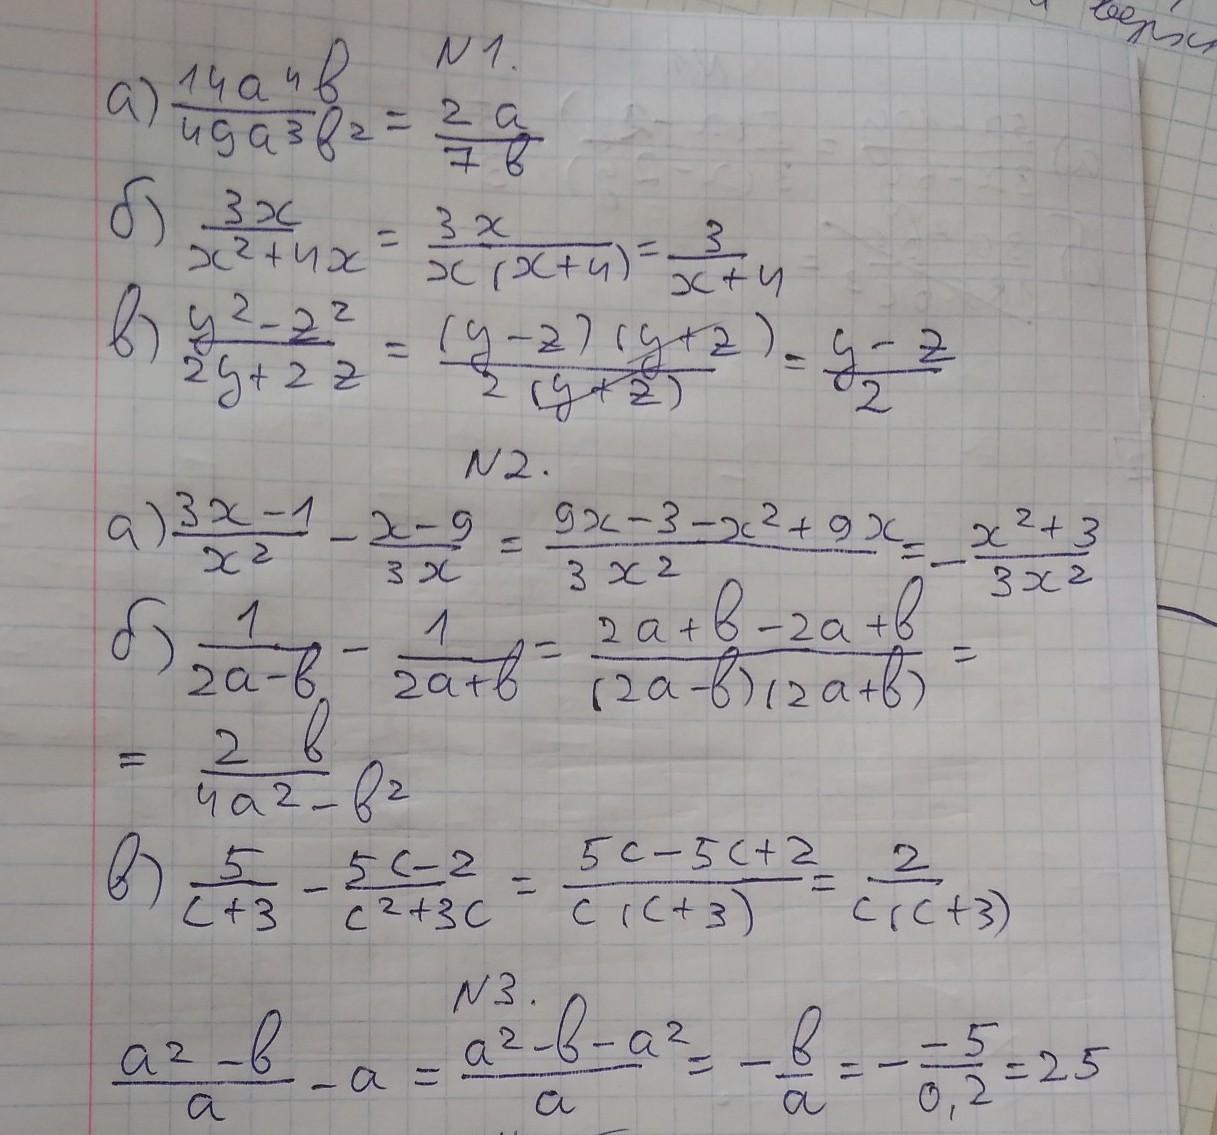 N1.
а) 14a^4b/49a^3b^2 = 2a/7b
б) 3x/x^2+4x = 3x/x(x+4) = 3/x+4
в) y^2-z^2/2y+2z = (y-z)(y+z)/2(y+z) = y-z/2
N2.
а) 3x-1/x^2 - x-9/3x = 9x-3-x^2+9x/3x^2 = -x^2+3/3x^2
б) 1/2a-b - 1/2a+b = 2a+b-2a+b/(2a-b)(2a+b) =
= 2b/4a^2-b^2
в) 5/c+3 - 5c-2/c^2+3c = 5c-5c+2/c(c+3) = 2/c(c+3)
N3.
a^2-b/a - a = a^2-b-a^2/a = -b/a = - -5/0,2 = 25